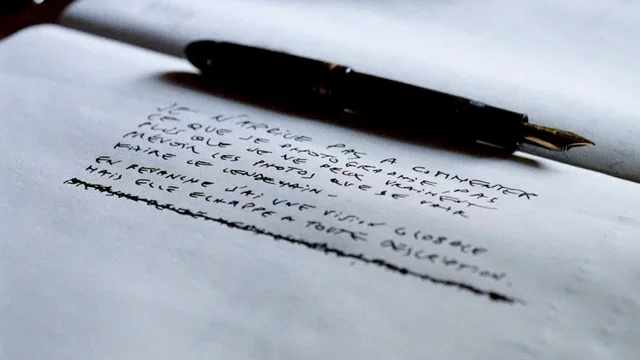 JE N'ARRIVE PAS A COMMENTER
CE QUE JE PHOTOGRAPHIE, PAS
PLUS QUE JE NE PEUX VRAIMENT
PRÉVOIR LES PHOTOS QUE JE VAIS
FAIRE LE LENDEMAIN -
EN REVANCHE J'AI UNE VISION GLOBALE
MAIS ELLE ECHAPPE A TOUTE DESCRIPTION.